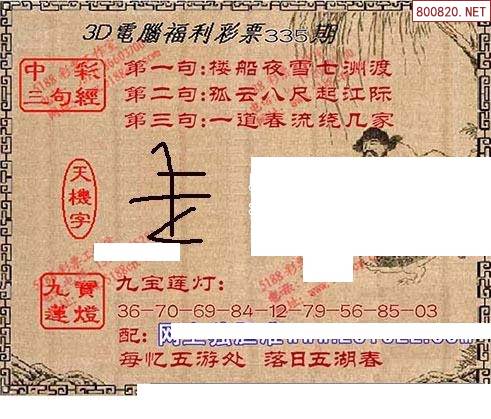 800820.NET
3D電腦福利彩票335期
中彩
三句經
第一句:楼船夜雪七洲渡
第二句:孤云八尺起江际
第三句:一道春流绕几家
天機字
九寶
蓮燈
九宝莲灯:
36-70-69-84-12-79-56-85-03
配:
每忆五游处 落日五湖春